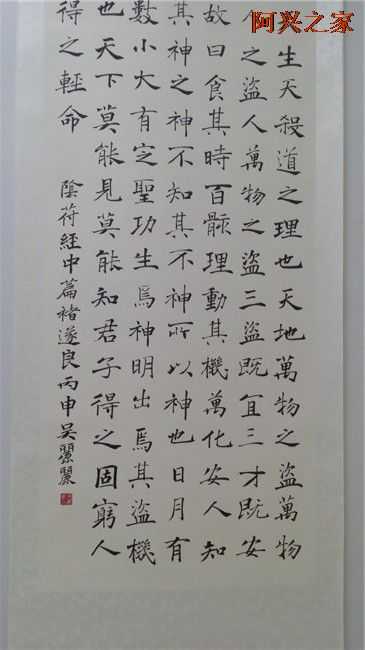 阿兴之家
生天殺道之理也天地萬物之盜萬物
之盜人萬物之盜三盜既宜三才既安
故曰食其時百骸理動其機萬化安人知
其神之神不知其不神所以神也日月有
數小大有定聖功生焉神明出焉其盜機
也天下莫能見莫能知君子得之固窮人
得之輕命
陰符經中篇褚遂良丙申吴翠